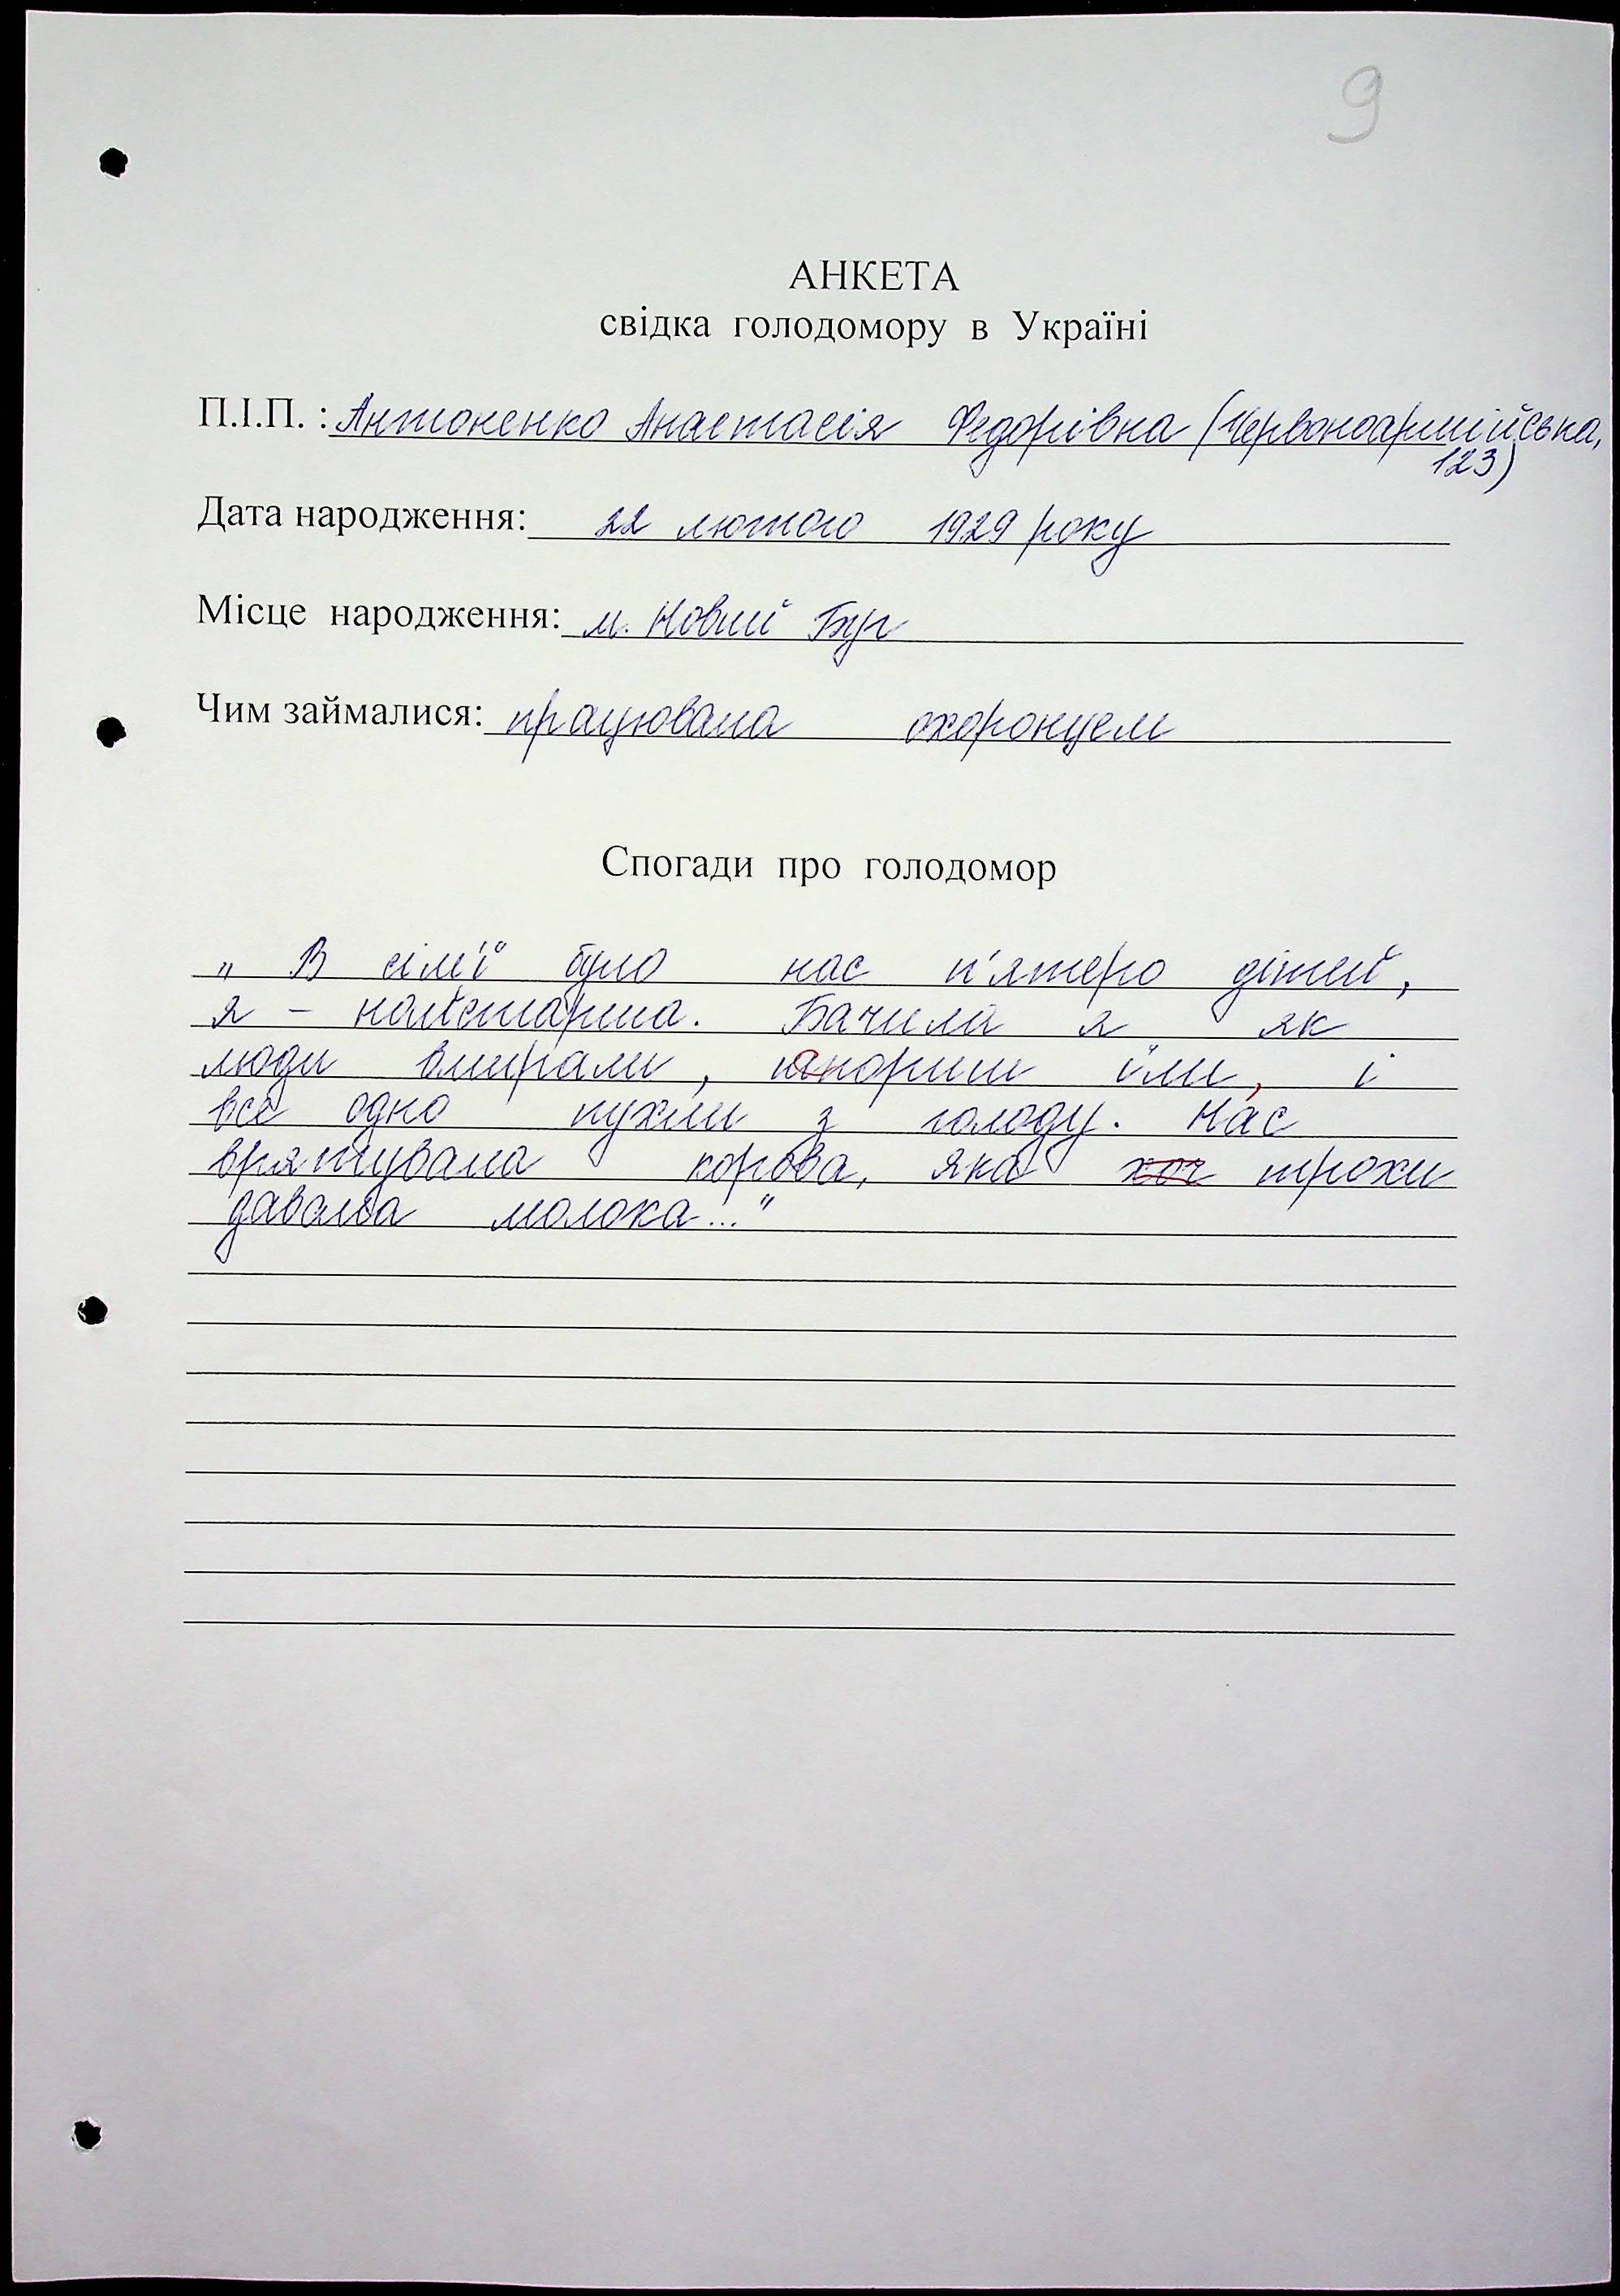 9
АНКЕТА
свідка голодомору в Україні
П.І.П. : Антоненко Анастасія Федорівна (Червоноармійська,
123)
Дата народження: 22 лютого 1929 року
Місце народження: м. Новий Буг
Чим займалися: працювала охоронцем
Спогади про голодомор
„ В сім'ї було нас п'ятеро дітей,
я – найстарша. Бачила я як
люди вмирали, їли, і
все одно пухли з голоду. Нас
врятувала корова, яка хоч трохи
давала молока..."